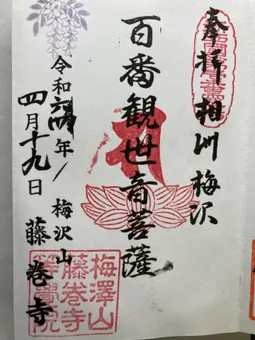 奉拝 相州梅沢
百番観世音菩薩
令和元年
四月十九日
梅沢山
藤巻寺
梅澤山
藤巻寺
等覺院